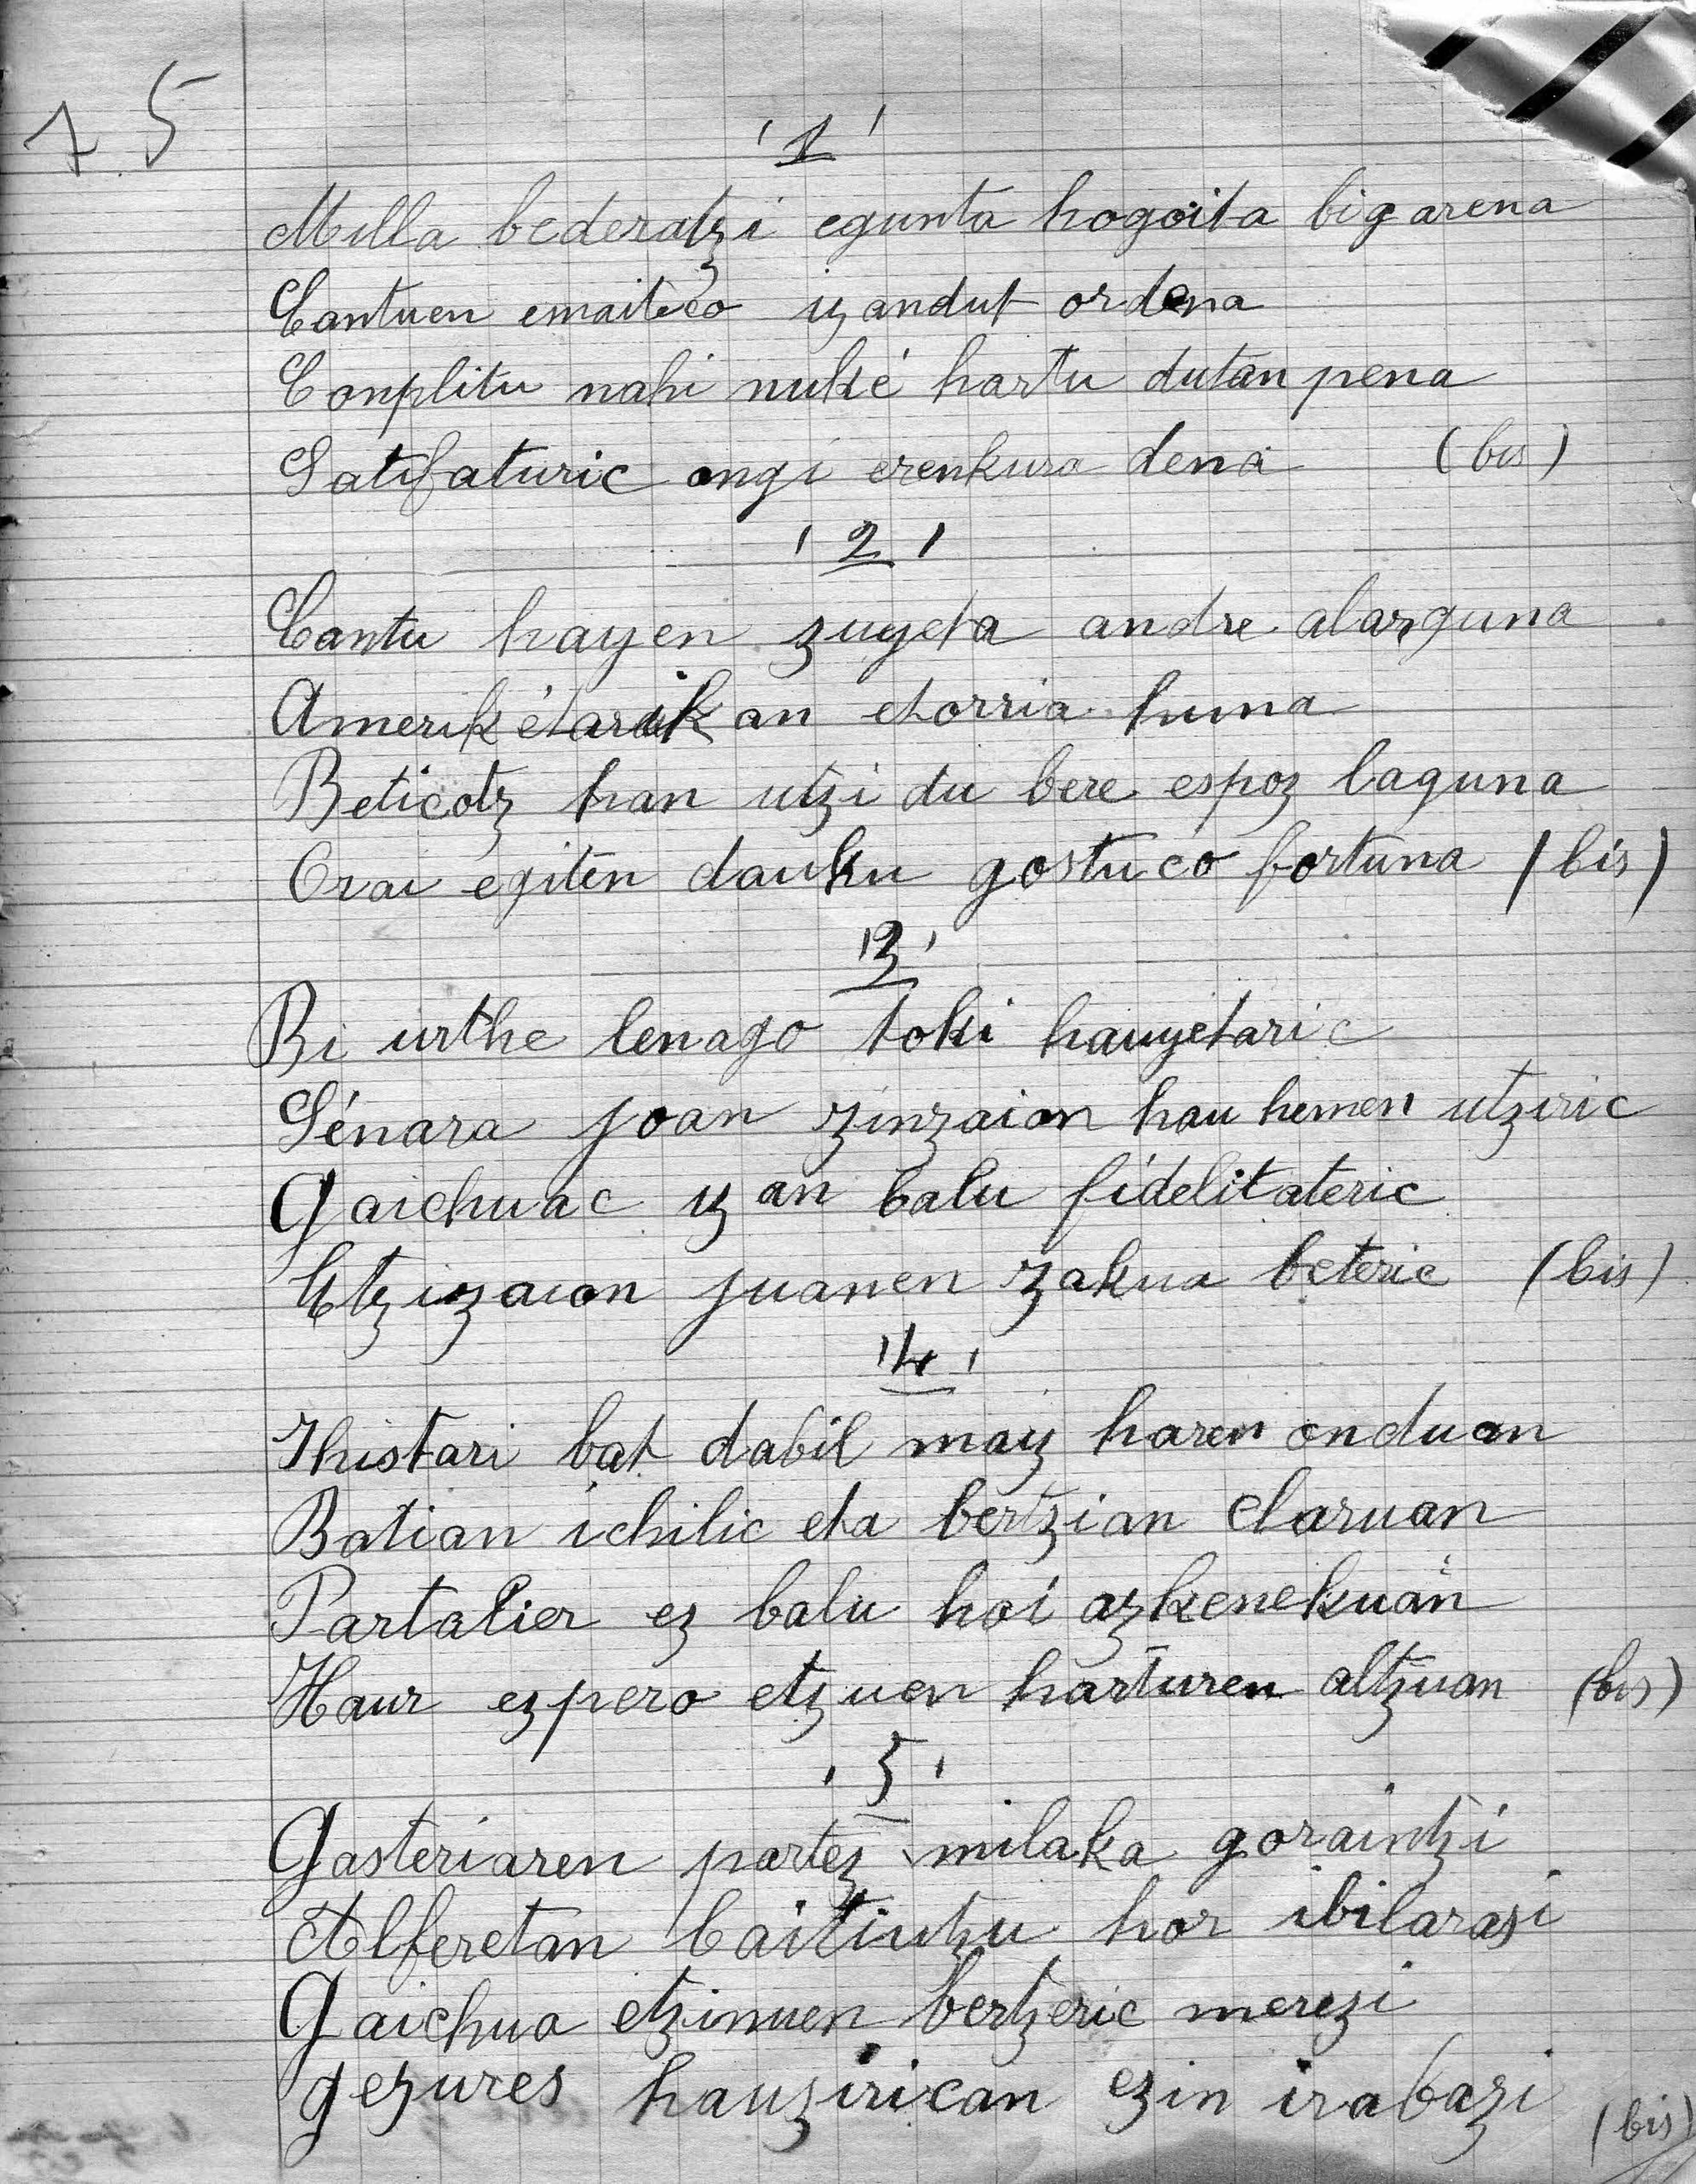 75
'1'
Milla bederatzi egunta hogoita bigarena
Cantuen emaiteco izandut ordena
Conplitu nahi nuké hartu dutan pena
Satifaturic ongi erenkura dena (bis)
'2'
Cantu hayen zuyeta andre alarguna
Ameriketarikan etorria huna
Beticotz han utzi du bere espoz laguna
Orai egiten dauku gostuco fortuna (bis)
'3'
Bi urthe lenago toki hauyetaric
Sénara joan zinzaion hau hemen utziric
Gaichuac izan balu fidelitateric
Etzizaion juanen zakua beteric (bis)
'4'
Ihistari bat dabil maiz haren onduan
Batian ichilic eta bertzian claruan
Partalier ez balu hoi azkenekuan
Haur ezpero etzuen harturen altzuan (bis)
'5'
Gasteriaren partez milaka goraintzi
Alferetan baitiutzu hor ibilarazi
Gaichua etzinuen bertzeric merezi
gezures hauzirican ezin irabazi (bis)